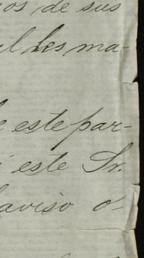 os de sus
l les ma-
este par-
este Sr.
aviso o-